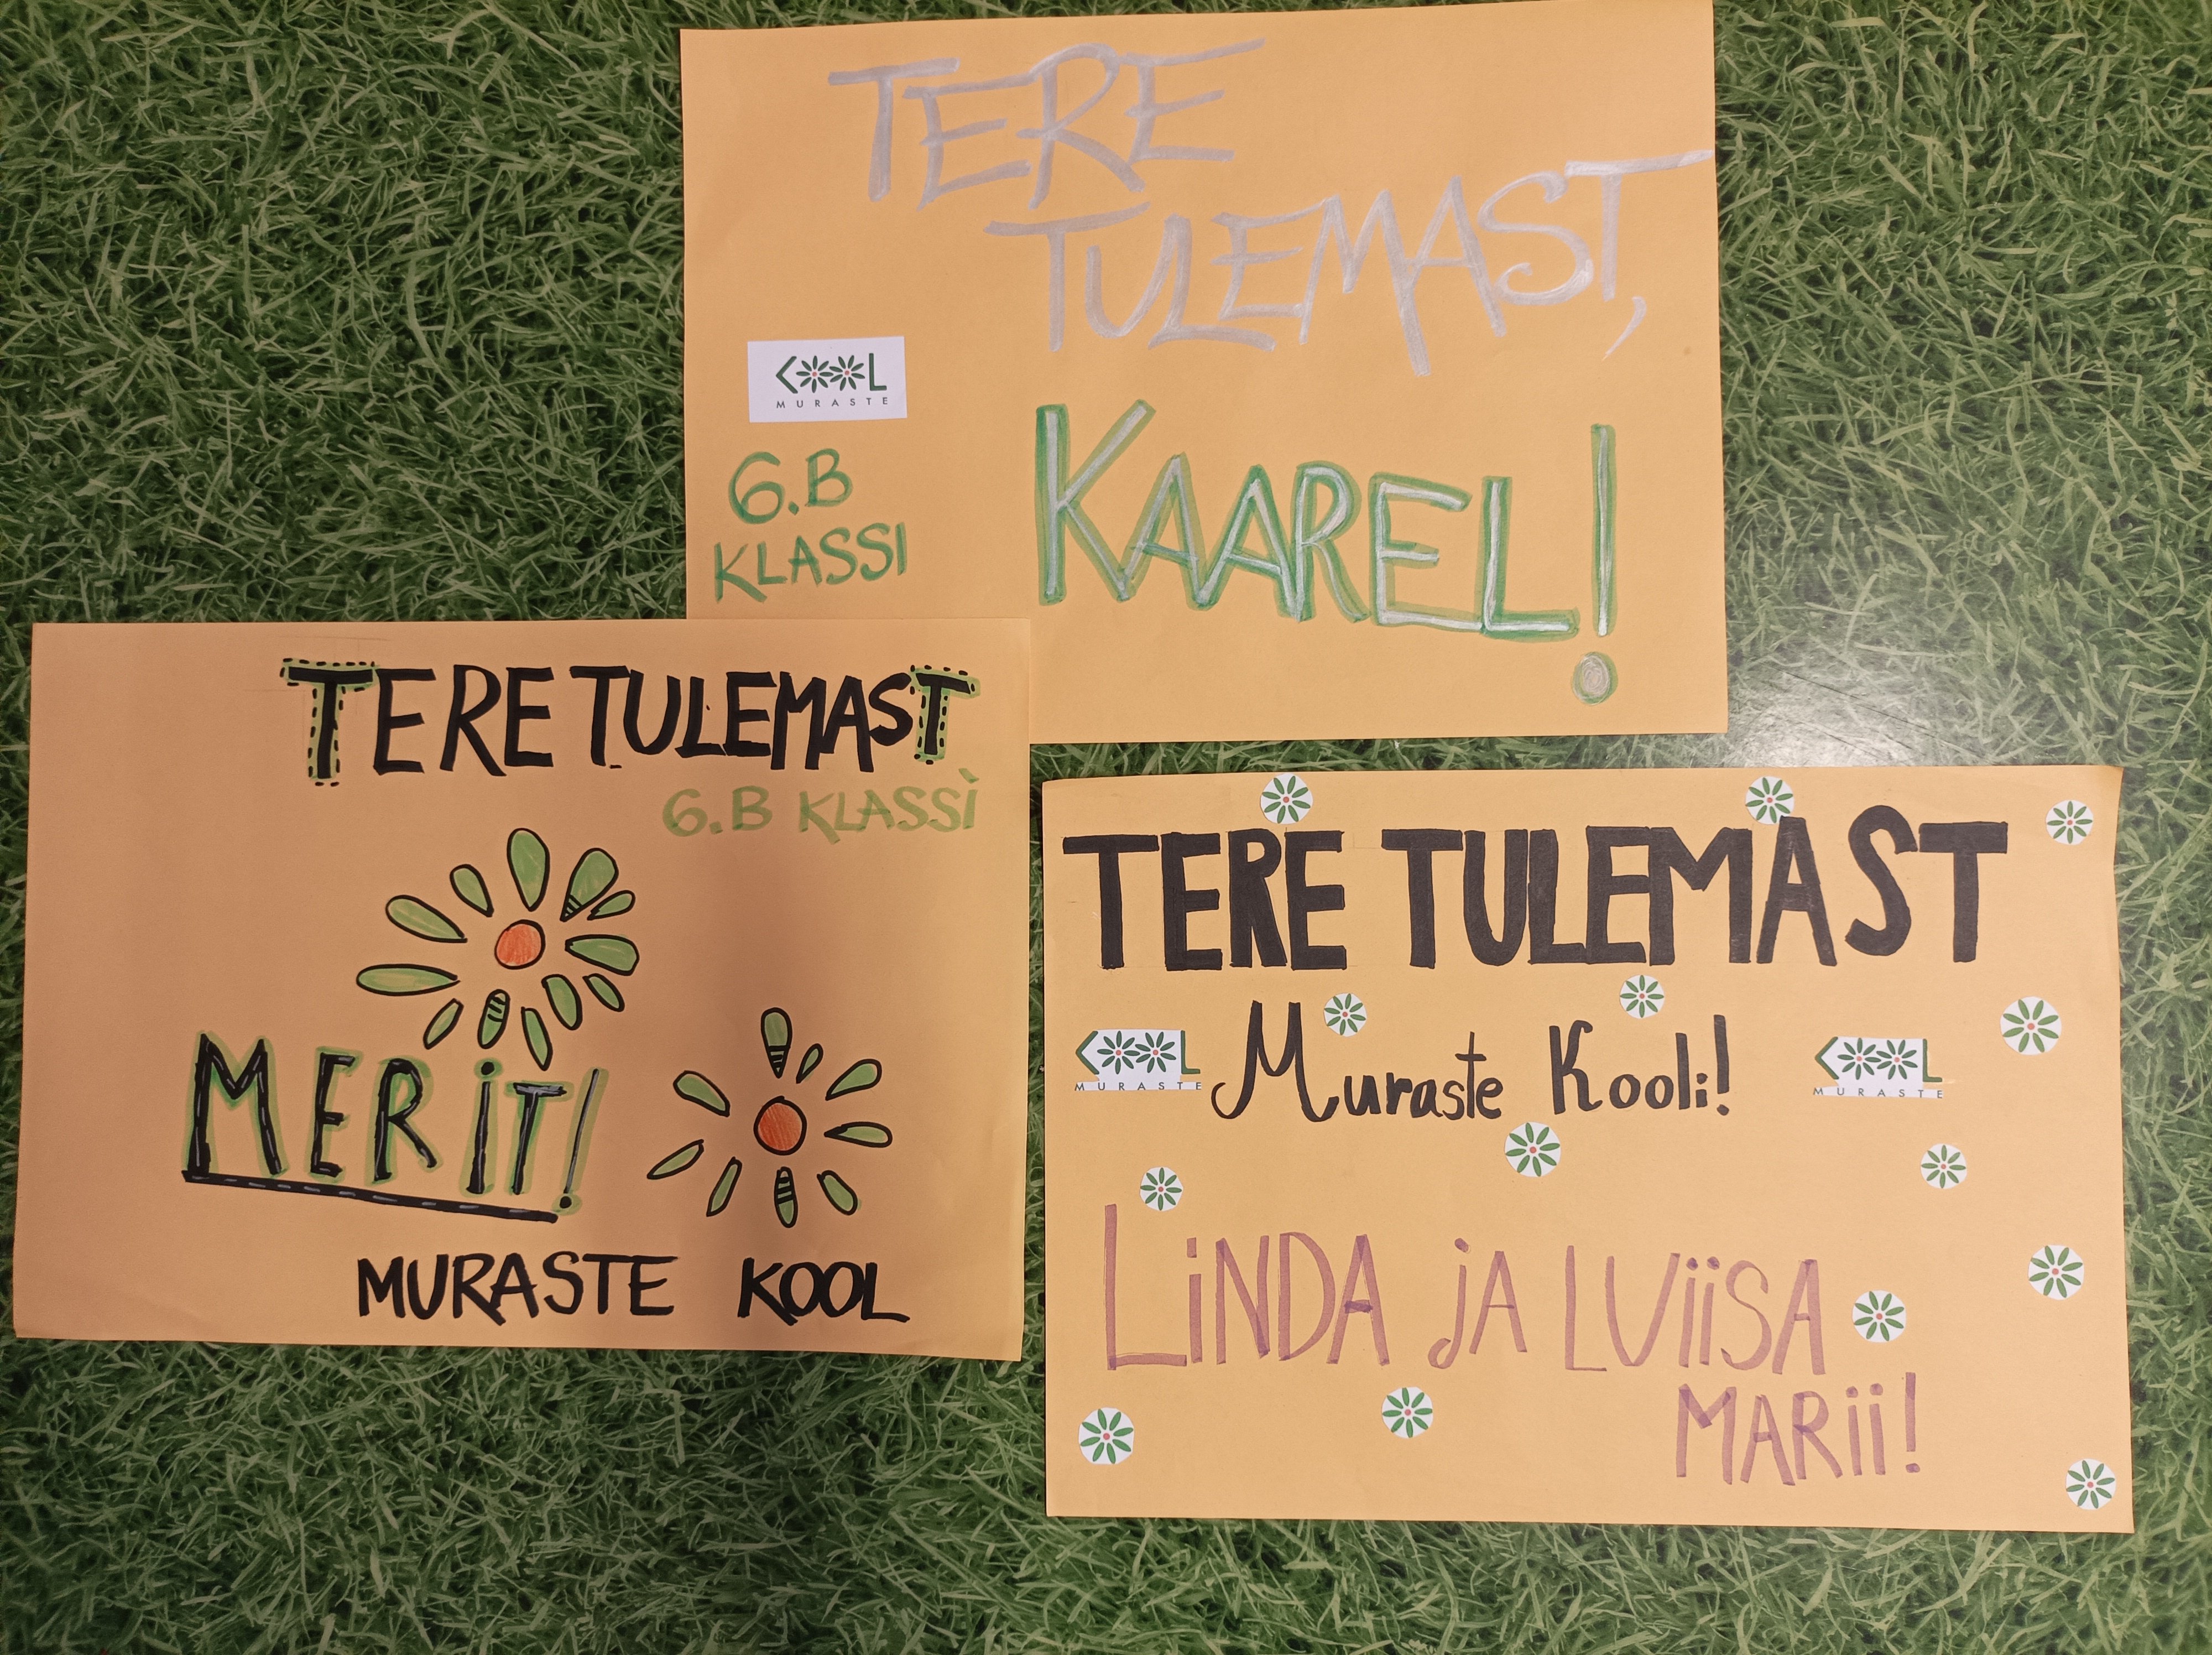 TERE
TULEMAST,
KOOL
MURASTE
6.B
KLASSI
KAAREL!
TERE TULEMAST
6.B KLASSI
MERIT!
MURASTE KOOL
TERE TULEMAST
KOOL
MURASTE
Muraste Kooli!
KOOL
MURASTE
LINDA JA LUIISA
MARII!